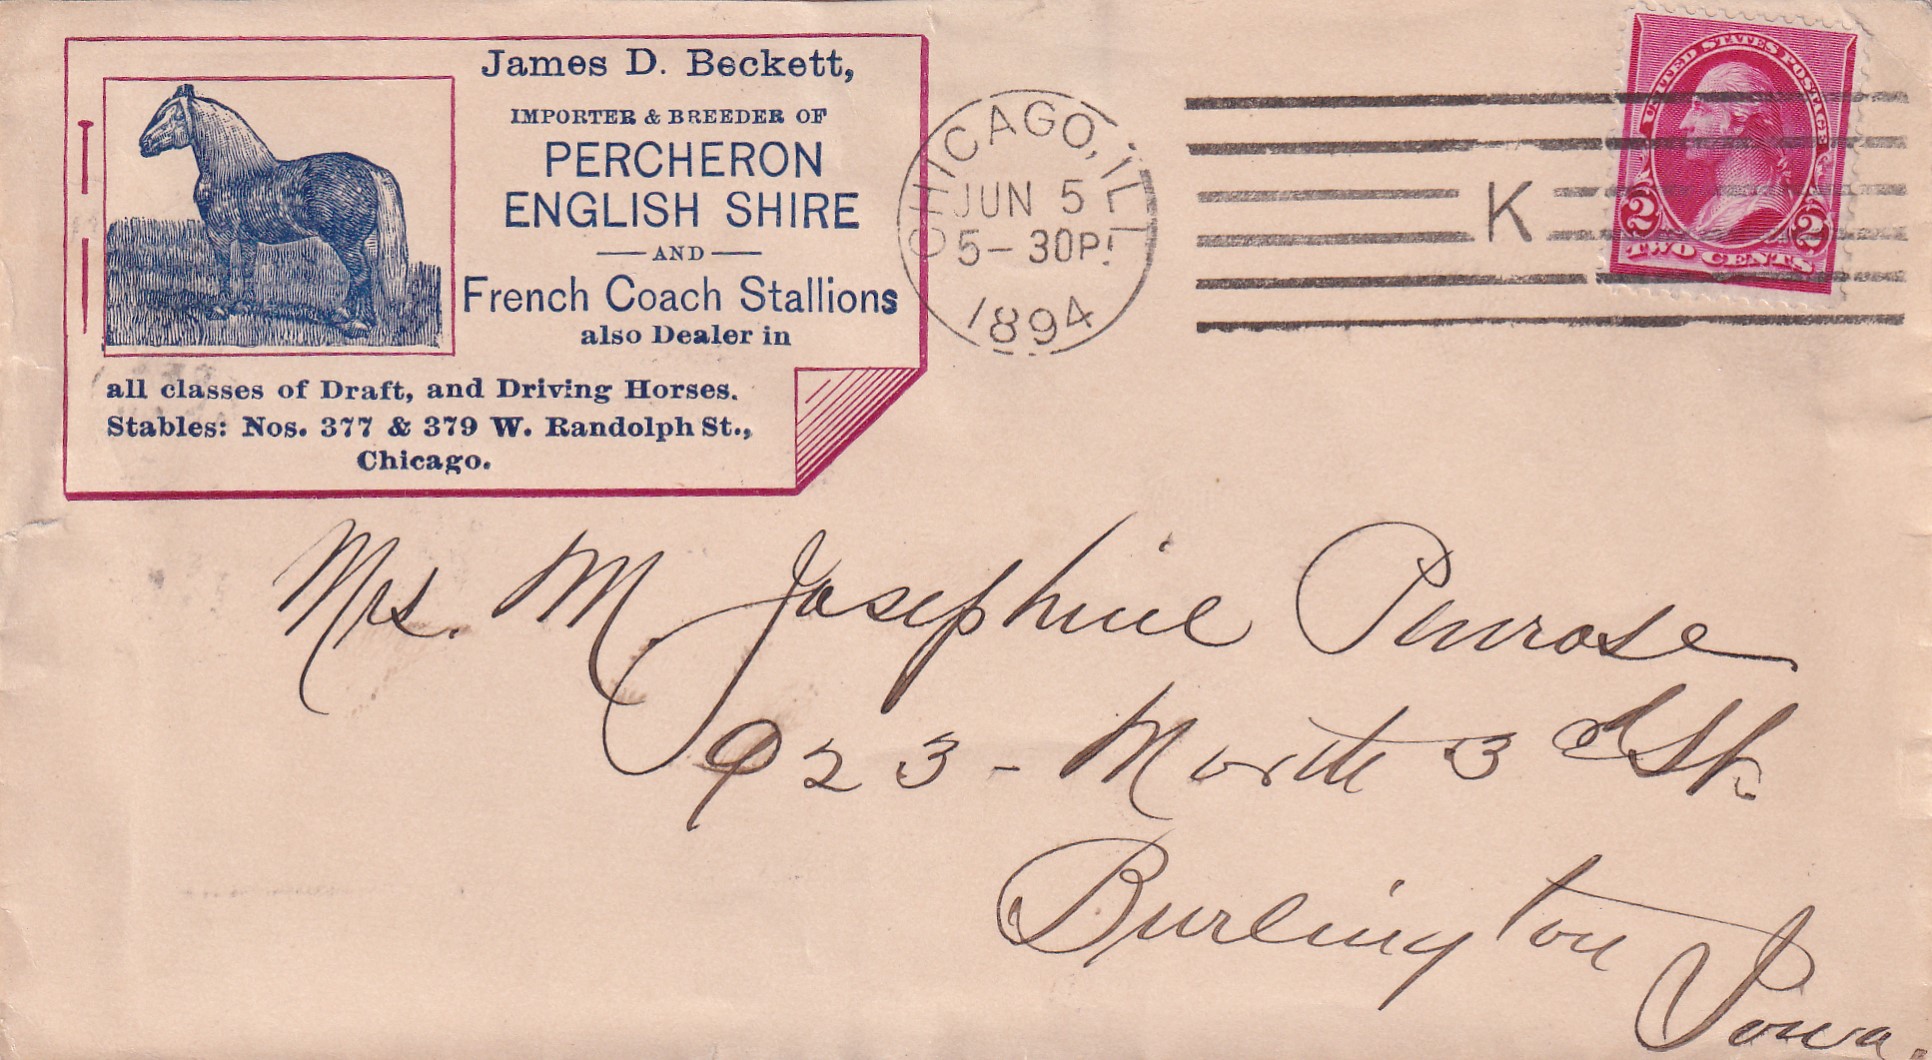 James D. Beckett,
IMPORTER & BREEDER OF
PERCHERON
ENGLISH SHIRE
AND
French Coach Stallions
also Dealer in
all classes of Draft, and Driving Horses.
Stables: Nos. 377 & 379 W. Randolph St.,
Chicago.
CHICAGO, ILL
JUN 5
5-30P!
1894
K
UNITED STATES POSTAGE
2 2
TWO CENTS
Mrs. M. Josephine Penrose
923 - North 3d St.
Burlington
Iowa.